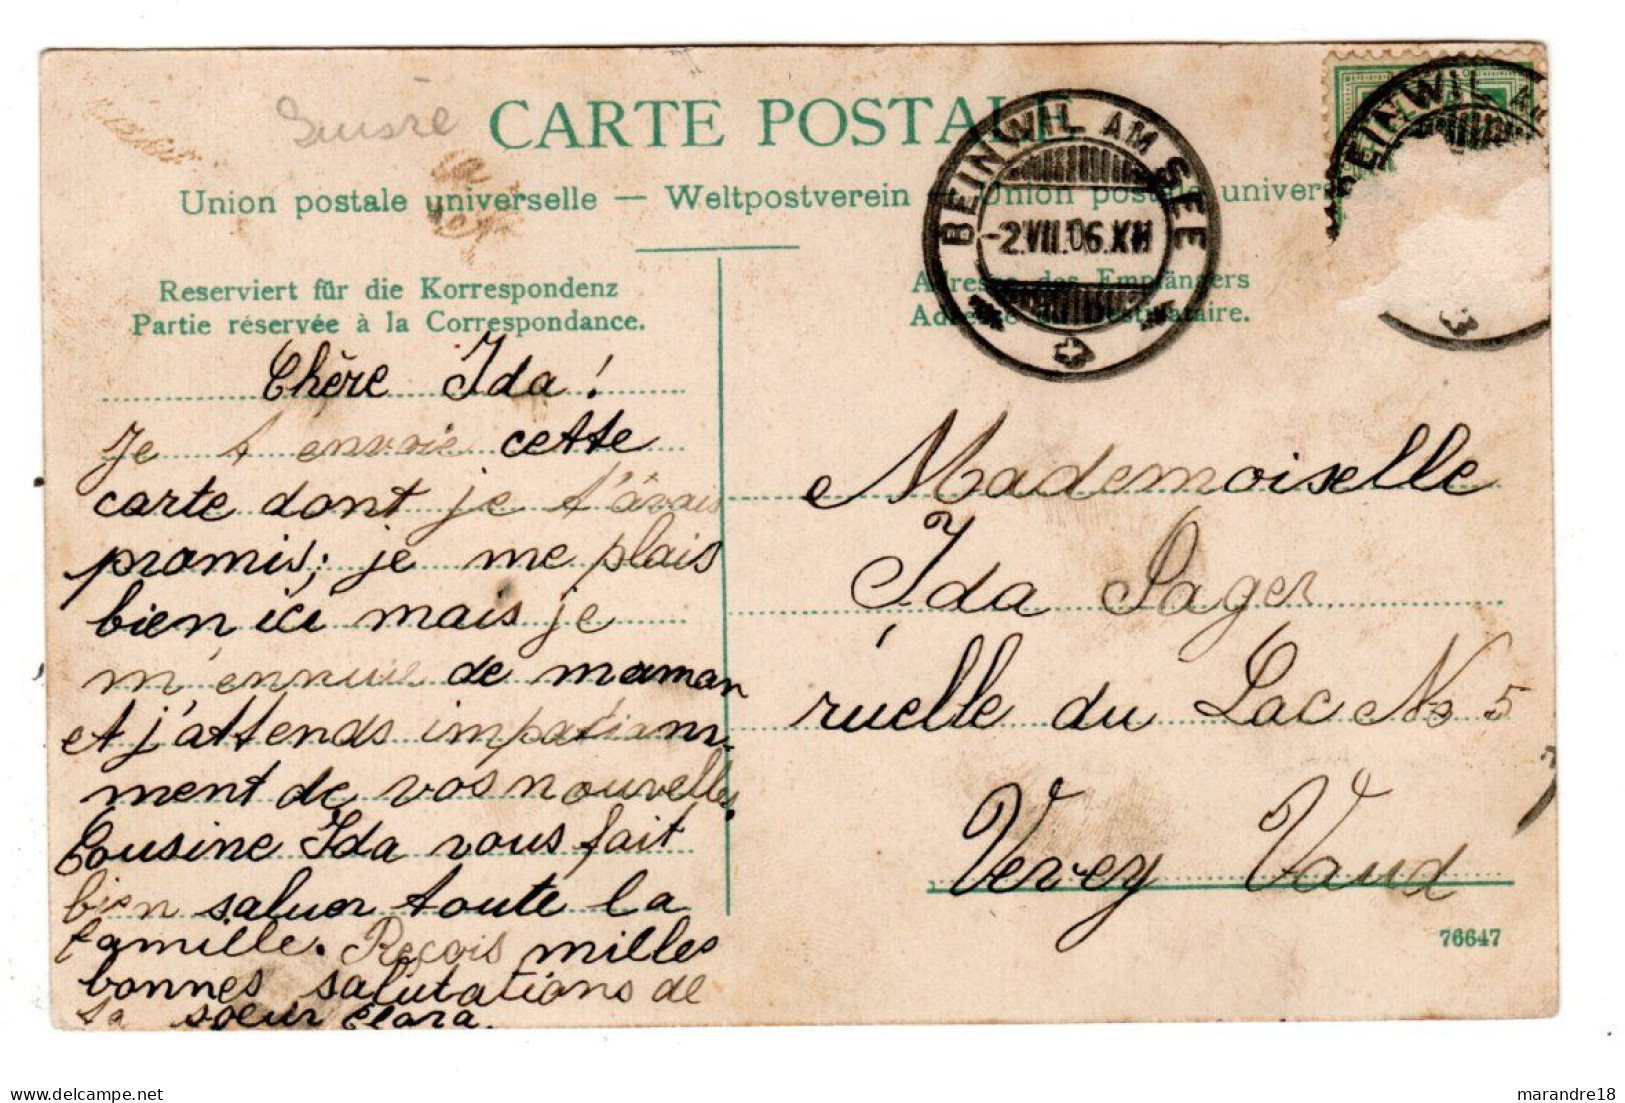 Suisse
CARTE POSTALE
Union postale universelle — Weltpostverein — Union postale univers
BEINWIL AM SEE
-2.VII.06.XII
BEINWIL AM
Reserviert für die Korrespondenz
Partie réservée à la Correspondance.
Adresse des Empfängers
Adresse du Destinataire.
Chère Ida!
Je t envoie cette
carte dont je t'avais
promis; je me plais
bien ici mais je
m'ennuie de maman
et j'attends impatiam-
ment de vos nouvelles.
Cousine Ida vous fait
bien saluer toute la
famille. Reçois milles
bonnes salutations de
ta soeur Clara.
Mademoiselle
Ida Pager
ruelle du Lac No 5
Vevey Vaud
76647
marandre18